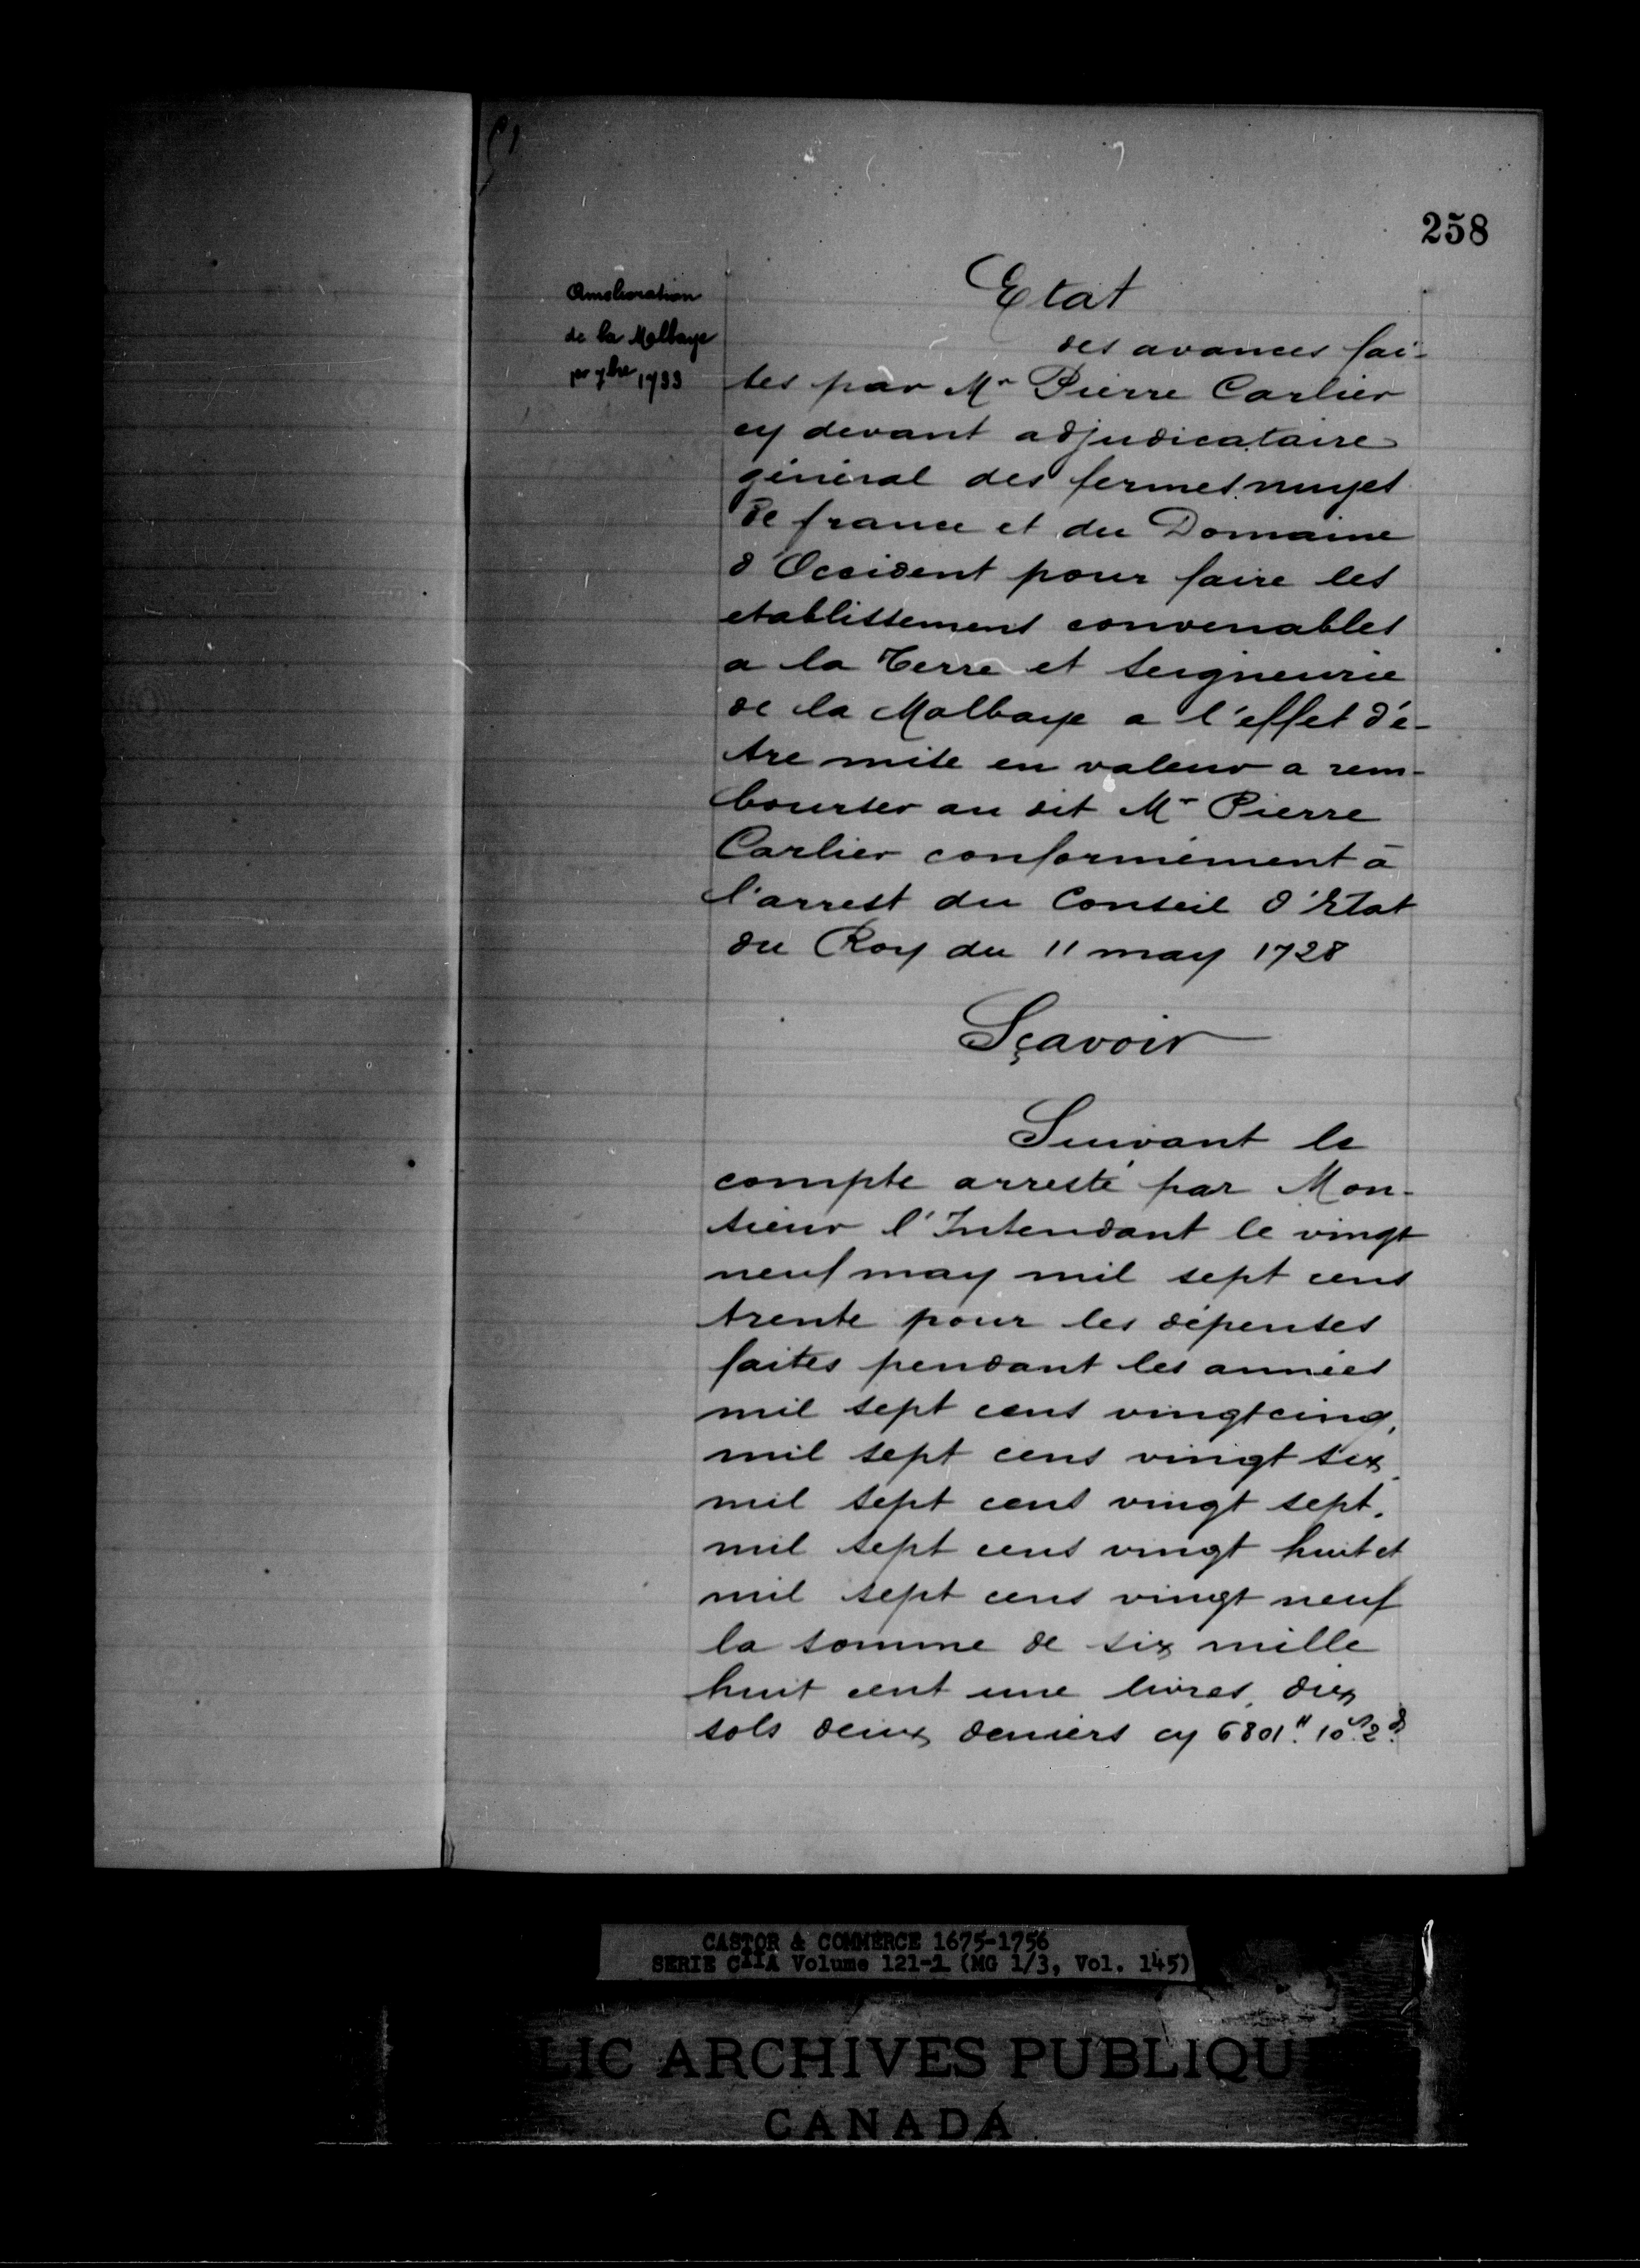 258
Amelioration
de la Malbaye
1er 7bre 1733
Etat
des avances fai-
tes par Mr Pierre Carlier
cy devant adjudicataire
général des fermes
de france et du Domaine
d'Occident pour faire les
etablissement convenables
a la Terre et Seigneurie
de la Malbaye a l'effet d'é-
tre mise en valeur a rem-
bourser au dit Mr Pierre
Carlier conformément à
l'arrest du Conseil d'Etat
du Roy du 11 may 1728
Sçavoir
Suivant le
compte arresté par Mon-
sieur l'Intendant le vingt
neuf may mil sept cens
trente pour les dépenses
faites pendant les années
mil sept cens vingt cinq,
mil sept cens vingt six,
mil sept cens vingt sept,
mil sept cens vingt huit et
mil sept cens vingt neuf
la somme de six mille
huit cent une livres, dix
sols deux deniers cy 6801# 10s 2d
CASTOR & COMMERCE 1675-1756
SERIE C11A Volume 121-1 (MG 1/3, Vol. 145)
LIC ARCHIVES PUBLIQU
CANADA